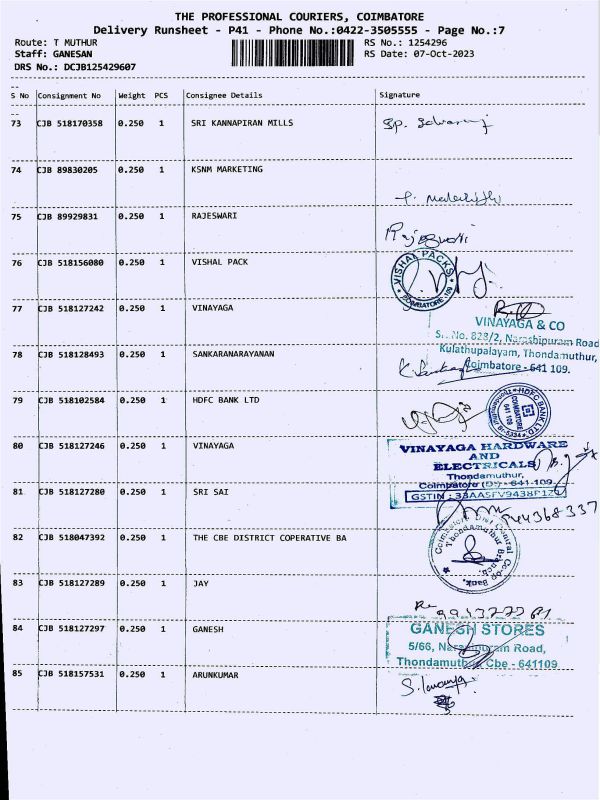 THE PROFESSIONAL COURIERS, COIMBATORE
Delivery Runsheet - P41 - Phone No.:0422-3505555 - Page No.:7
Route: T MUTHUR RS No.: 1254296
Staff: GANESAN RS Date: 07-Oct-2023
DRS No.: DCJB125429607
S No Consignment No Weight PCS Consignee Details Signature
73 CJB 518170358 0.250 1 SRI KANNAPIRAN MILLS
74 CJB 89830205 0.250 1 KSNM MARKETING
75 CJB 89929831 0.250 1 RAJESWARI
76 CJB 518156080 0.250 1 VISHAL PACK
VISHAL PACKS
COIMBATORE 109
77 CJB 518127242 0.250 1 VINAYAGA
VINAYAGA & CO
S. No. 828/2, Narasbipuram Road
Kulathupalayam, Thondamuthur,
Coimbatore - 641 109.
78 CJB 518128493 0.250 1 SANKARANARAYANAN
79 CJB 518102584 0.250 1 HDFC BANK LTD
HDFC BANK LTD.
COIMBATORE
641 109
80 CJB 518127246 0.250 1 VINAYAGA
VINAYAGA HARDWARE
AND
ELECTRICALS
Thondamuthur,
Coimbatore (Dt) - 641 109
81 CJB 518127280 0.250 1 SRI SAI
82 CJB 518047392 0.250 1 THE CBE DISTRICT COPERATIVE BA
Coimbatore Dist Central Co-op Bank,
Thondamuthur Branch.
83 CJB 518127289 0.250 1 JAY
84 CJB 518127297 0.250 1 GANESH
GANESH STORES
5/66, Narasipuram Road,
Thondamuthur, Cbe - 641109
85 CJB 518157531 0.250 1 ARUNKUMAR